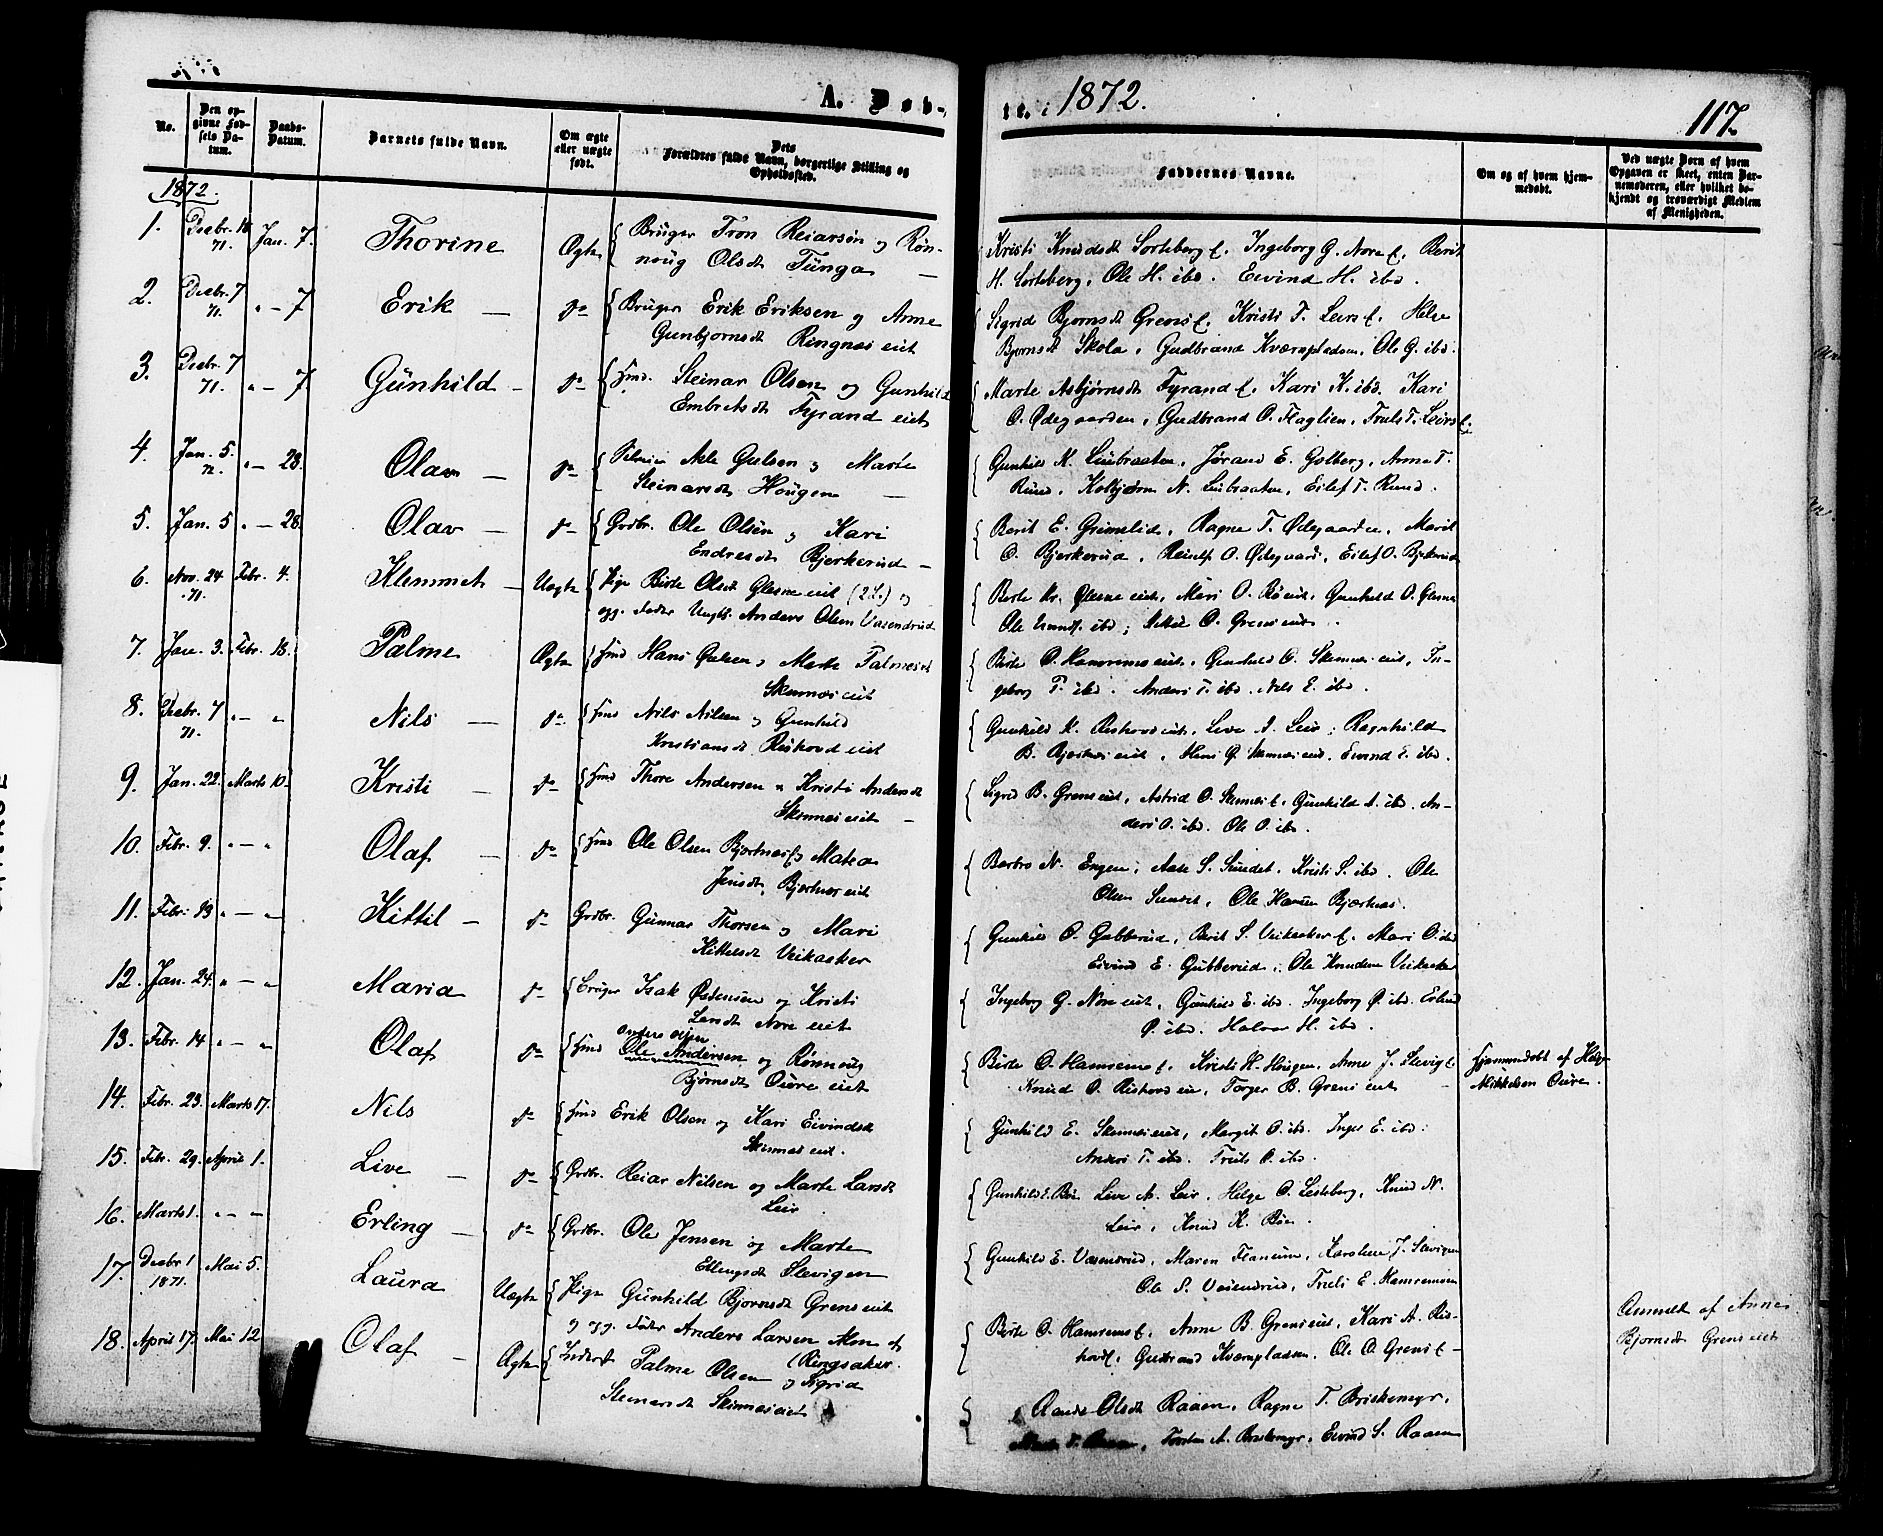 A. Døb-
te. i 1872.
117.
No.
Den opgivne Fødsels Datum.
Daabs-Datum.
Barnets fulde Navn.
Om ægte eller uægte født.
Dets Forældres fulde Navn, borgerlige Stilling og Opholdssted.
Faddernes Navne.
Om og af hvem hjemmedøbt.
Ved uægte Børn af hvem Opgaven er skeet, enten Barnemoderen, eller hvilket bekjendt og troværdigt Medlem af Menigheden.
1872.
1. Decbr. 71. Jan. 7. Thorine Ægte Bruger Tron Reiarsøn og Røn-
noug Olsdt Tunga
Kristi Knudsdt Sorteberg Ingeborg G. Nore Berit
H. Sorteberg, Ole H. ibd. Eivind H. ibd.
2. Decbr. 7 71. " - 7 Erik do Bruger Erik Eriksen og Anne
Gunbjornsdt Ringnæs eiet
Sigrid Bjornsdt Grens Kristi T. Leirs Helge
Bjornsdt Skola, Gudbrand Kværnpladsen, Ole G. ibd.
3. Decbr. 7 71. " - 7 Gunhild do Steinar Olsen og Gunhild
Embretsdt Fyrand eiet
Marte Asbjørnsdt Fyrand Kari K. ibd. Kari
O. Ødegaarden, Gudbrand O. Flaglien, Truls T. Leirs
4. Jan. 5. 72. " - 28. Olav do Gulsen og Marte
Steinarsdt Hougen
Gunhild K. Liubraaten, Jørand E. Golberg, Anne T.
Ruud, Kolbjørn N. Liubraaten, Eilef T. Ruud.
5. Jan. 5 " - 28. Olav do Grdbr. Ole Olsen og Kari
Endresdt Bjerkerud
Berit E. Grimelid, Ragne T. Ødegaarden, Marit
O. Bjerkerud, O. Ødegaard, Eilef O. Bjerkerud
6. Nov. 24 71. Febr. 4. Klemmet Uægte Pige Birte Olsdt Glesne eiet (2 L.) og
opg. Fader Ungk. Anders Olsen Vasendrud
Berte Kr. Glesne eiet, Mari O. Bø eiet, Gunhild O. Glesne
Ole ibd; Mikkel O. Grens eiet
7. Jan. 3. Febr. 18. Palme Ægte Hans Gulsen og Marte Palmesdt
Skinnæs eiet
Birte O. Hamremoeiet, Gunhild O. Skinnæs eiet, In-
geborg T. ibd. Anders T. ibd. Nils E. ibd.
8. Decbr. 7 71. " - " Nils do Nils Nilsen og Gunhild
Kristiansdt Rishovd eiet
Gunhild K. Rishovd eiet, Live A. Leir; Ragnhild
B. Bjertnæs eiet, Hans G. Skinnæs eiet, Eivind E. ibd.
9. Jan. 22. Marts 10. Kristi do Thore Andersen og Kristi Andersdt
Skinnæs eiet
Sigrid B. Grens eiet, Astrid O. Skinnæs, Gunhild A. ibd. An-
ders O. ibd. Ole O. ibd.
10. Febr. 9. " - " Olaf do Ole Olsen Bjertnæs og Matea
Jensdt, Bjertnæs eiet
Barbro N. Engen, Aase S. Sundet, Kristi S. ibd. Ole
Olsen Sundet, Ole Hansen Bjertnæs.
11. Febr. 13 " - " Kittil do Grdbr. Gunnar Thorsen og Mari
Kittelsdt Veikaaker
Gunhild O. Gubberud, Berit S. Veikaaker Mari O. ibd
Eivind E. Gubberud, Ole Knudsen Veikaaker
12. Jan. 24. " - " Maria do Bruger Isak Østensen og Kristi
Larsdt Nore eiet
Ingeborg G. Nore eiet, Gunhild E. ibd. Ingeborg Ø. ibd. Erlend
Ø. ibd. Halvor H. ibd.
13. Febr. 14 " - " Olaf do Anders Olsen
Ole Andersen og Rønnoug
Bjørnsdt Oure eiet
Birte O. Hamremo Kristi H. Haugen, Anne J. Slevig
Knud O. Rishovd eie, Torger B. Grens eiet
Hjemmedøbt af Helge
Mikkelsen Oure.
14. Febr. 23. Marts 17. Nils do Erik Olsen og Kari Eivindsdt
Skinnæs eiet.
Gunhild E. Skinnæs eiet, Margit O. ibd. Inger E. ibd.
Anders T. ibd. Truls O. ibd.
15. Febr. 29. April 1. Live do Grdbr. Reiar Nilsen og Marte Larsdt
Leir
Gunhild E. Bøe Live A. Leir, Helge O. Lesteberg, Knud N.
Leir, Knud K. Bøe.
16. Marts 1. " - " Erling do Grdbr. Ole Jensen og Marte
Ellingsdt Slevigen
Gunhild E. Vasendrud, Maren Karoline J. Slevigen
Ole S. Vasendrud, Truls E. Hamremoen
17. Decbr 1 1871. Mai 5. Laura Uægte Pige Gunhild Bjornsdt Grens eiet
og opg. Fader Anders Larsen Moen af
(Ringsaker.
Birte O. Hamremo, Anne B. Grens eiet, Kari A. Ris-
hovd, Gudbrand Kværnpladsen, Ole O. Grens
Anmeldt af Anne
Bjornsdt Grens eiet
18. April 17. Mai 12 Olaf Ægte Palme Olsen og Sigrid
Steinarsdt Skinnæs eiet
Rande Olsdt Raaen, Ragne T. Briskemyr,
Torsten A. Briskemyr, Eivind S. Raaen